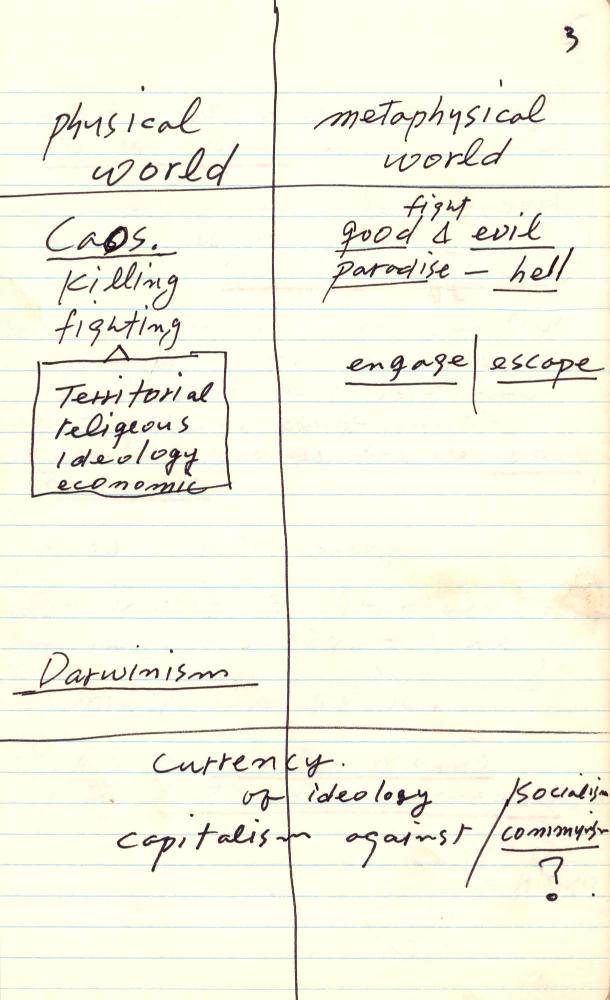 3
physical
world
metaphysical
world
Caos.
Killing
fighting
Territorial
religeous
ideology
economic
Darwinism
fight
good & evil
paradise - hell
engage | escape
currency.
of ideology
capitalism against / socialism
communism
?